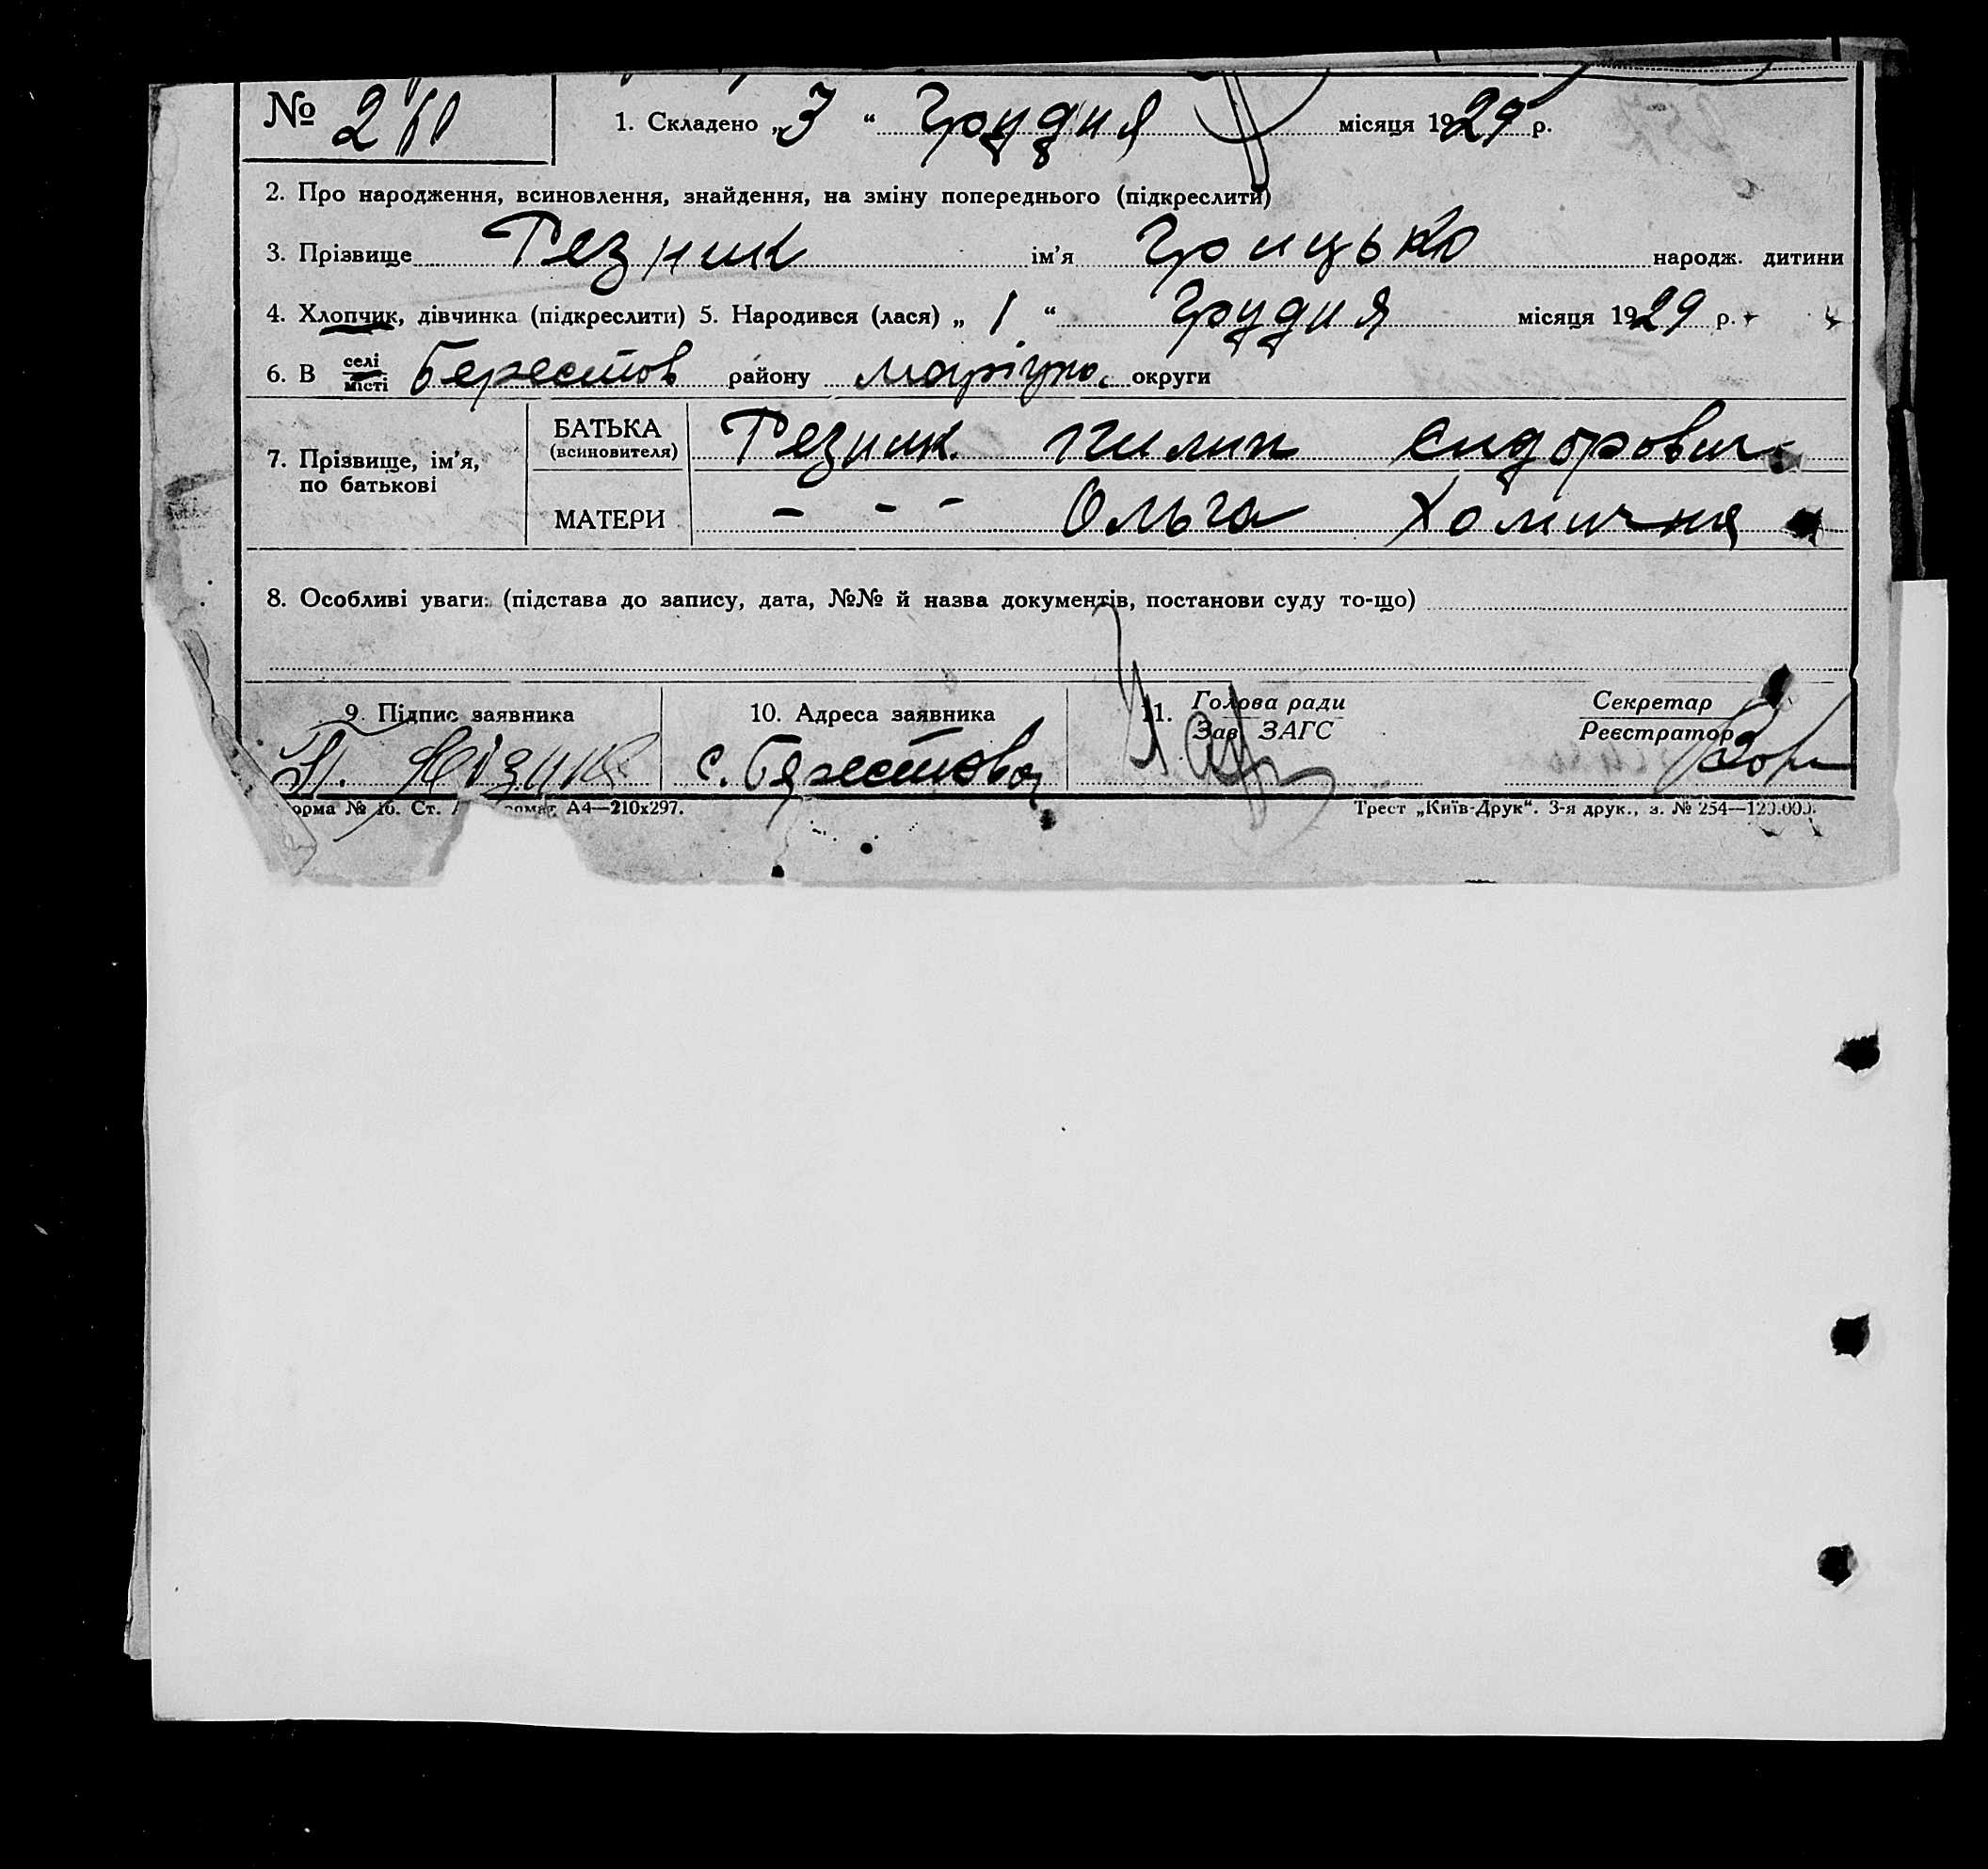 № 260 1. Складено „3“ Грудня місяця 1929 р.
2. Про народження, всиновлення, знайдення, на зміну попереднього (підкреслити)
3. Прізвище Резник ім’я Грицько народж. дитини
4. Хлопчик, дівчинка (підкреслити) 5. Народився (лася) „1“ Грудня місяця 1929 р.
6. В селі місті Берестов району маріуп. округи
7. Прізвище, ім’я, по батькові
БАТЬКА (всиновителя) Резник Пилип Сидорович
МАТЕРИ - - - Ольга Хомична
8. Особливі уваги: (підстава до запису, дата, №№ й назва документів, постанови суду то-що)
9. Підпис заявника 10. Адреса заявника 11. Голова ради Секретар
Зав. ЗАГС Реєстратор
П. Різник с. Берестова
орма № 16. Ст. А4—210х297. Трест „Київ-Друк“. 3-я друк., з. № 254—120.000.